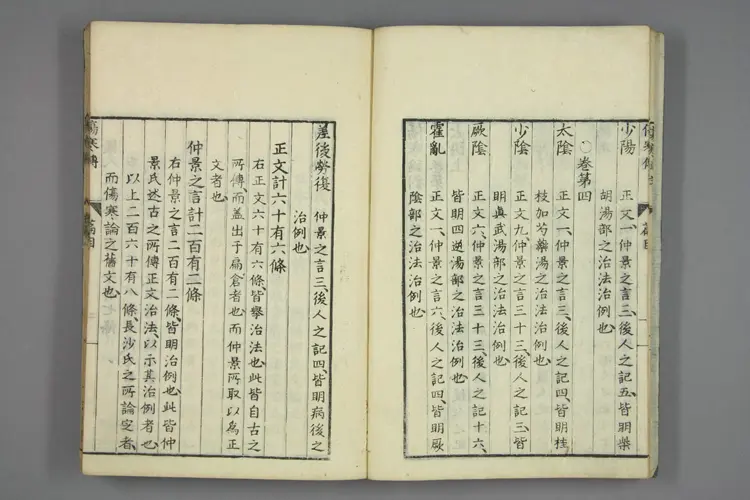 少陽　正文一、仲景之言三、後人之記五、皆明柴
胡湯部之治法治例也
○卷第四
太陰　正文一、仲景之言三、後人之記四、皆明桂
枝加芍藥湯之治法治例也
少陰　正文九、仲景之言三十三、後人之記三、皆
明眞武湯部之治法治例也
厥陰　正文六、仲景之言三十三、後人之記十六、
皆明四逆湯部之治法治例也
霍亂　正文一、仲景之言六、後人之記四、皆明厥
陰部之治法治例也
差後勞復　仲景之言三、後人之記四、皆明病後之
治例也
正文計六十有六條
右正文六十有六條皆擧治法也此皆自古之
所傳、而蓋出于扁倉者也而仲景所取以為正
文者也
仲景之言計二百有二條
右仲景之言二百有二條、皆明治例也此皆仲
景氏述古之所傳正文治法、以示其治例者也
以上二百六十有八條、長沙氏之所論定者、
而傷寒論之舊文也
傷寒
篇目
篇目